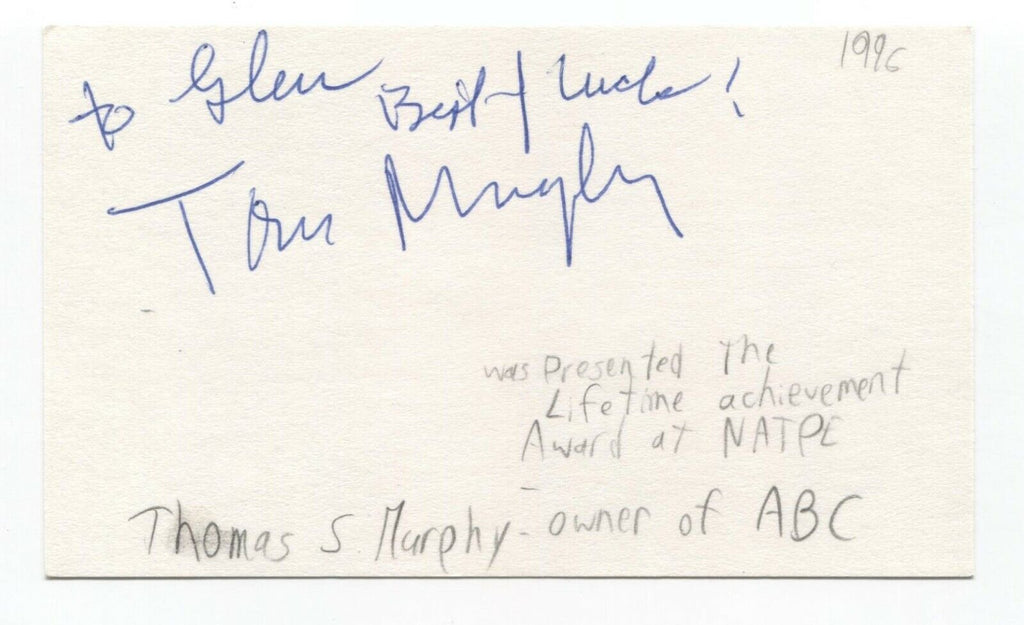 1996
to Glen Best of luck!
Tom Murphy
was presented The
Lifetime achievement
Award at NATPE
Thomas S. Murphy - owner of ABC